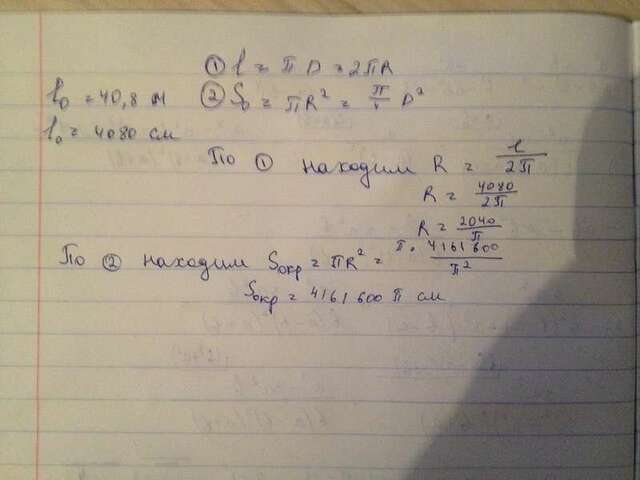 ① l = π D = 2πR
l₀ = 40,8 м
② S₀ = πR² = π/4 D²
l₀ = 4080 см
По ① находим R = l/2π
R = 4080/2π
R = 2040/π
По ② находим Sокр = πR² = π · 4161600/π²
Sокр = 4161600 π см